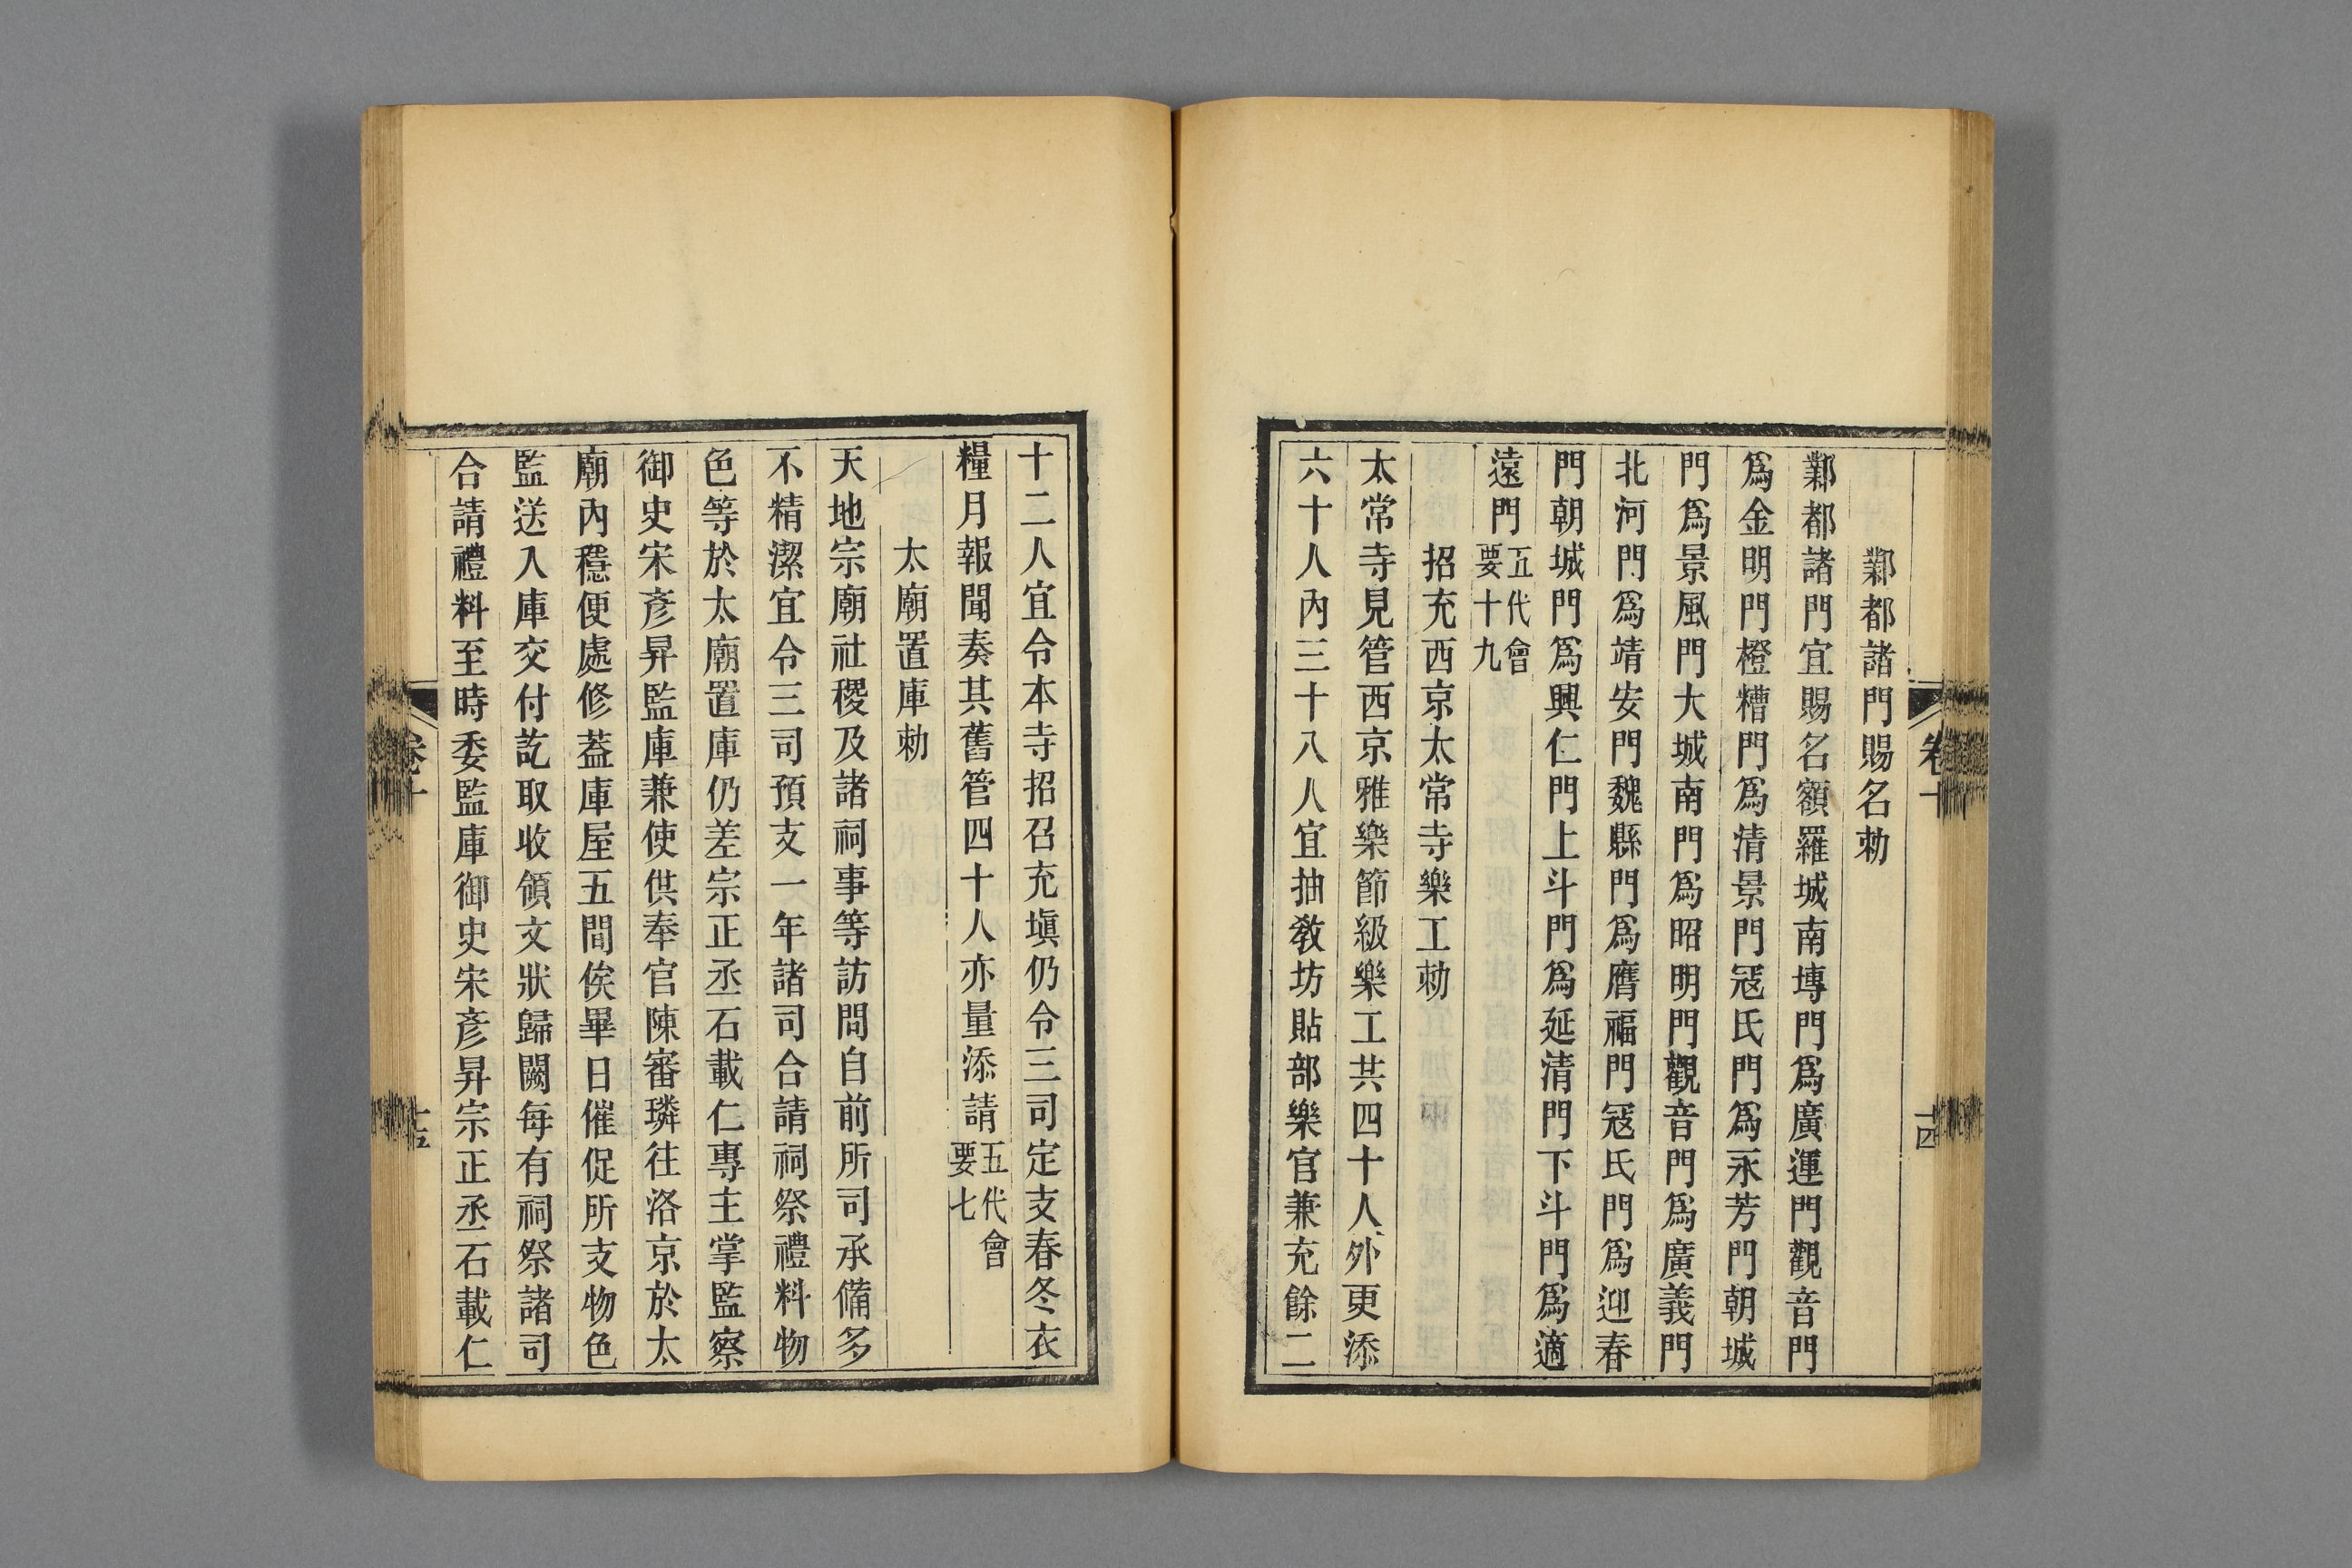 鄴都諸門賜名勅
鄴都諸門宜賜名額羅城南塼門爲廣運門觀音門
爲金明門橙糟門爲清景門冦氏門爲永芳門朝城
門爲景風門大城南門爲昭明門觀音門爲廣義門
北河門爲靖安門魏縣門爲膺福門冦氏門爲迎春
門朝城門爲興仁門上斗門爲延清門下斗門爲適
遠門五代會
要十九
招充西京太常寺樂工勅
太常寺見管西京雅樂節級樂工共四十人外更添
六十人內三十八人宜抽敎坊貼部樂官兼充餘二
卷十
十四
十二人宜令本寺招召充塡仍令三司定支春冬衣
糧月報聞奏其舊管四十人亦量添請五代會
要七
太廟置庫勅
天地宗廟社稷及諸祠事等訪問自前所司承備多
不精潔宜令三司預支一年諸司合請祠祭禮料物
色等於太廟置庫仍差宗正丞石載仁專主掌監察
御史宋彥昇監庫兼使供奉官陳審璘往洛京於太
廟內穩便處修葢庫屋五間俟畢日催促所支物色
監送入庫交付訖取收領文狀歸闕每有祠祭諸司
合請禮料至時委監庫御史宋彥昇宗正丞石載仁
卷十
十五